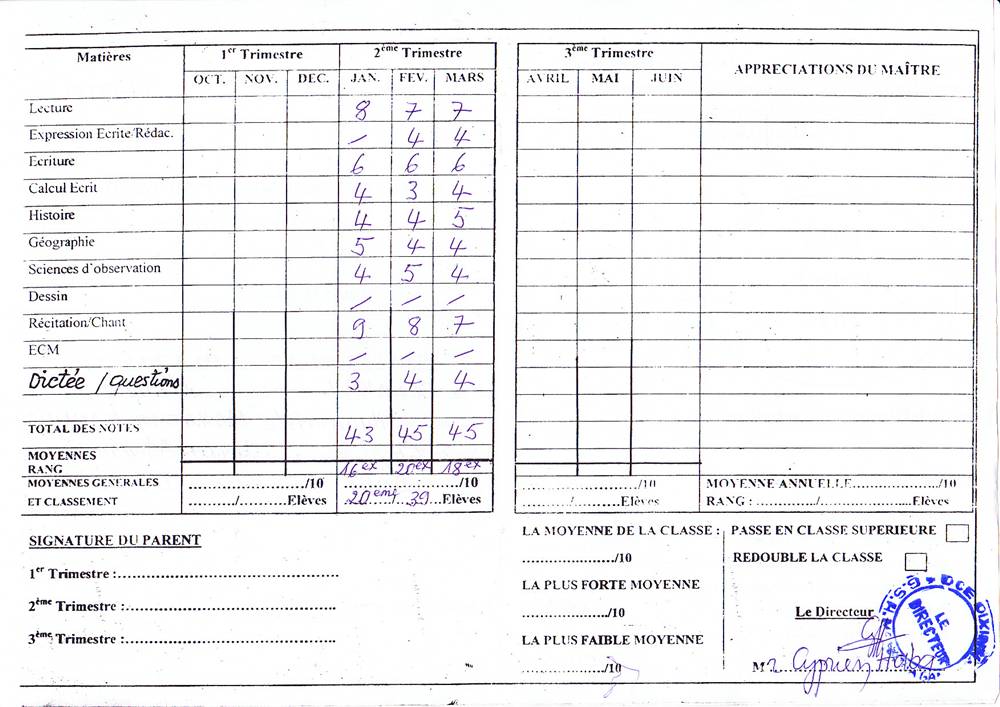 Matières 1er Trimestre 2ème Trimestre 3ème Trimestre APPRECIATIONS DU MAÎTRE
OCT. NOV. DEC. JAN. FEV. MARS AVRIL MAI JUIN
Lecture 8 7 7
Expression Ecrite/Rédac. – 4 4
Ecriture 6 6 6
Calcul Ecrit 4 3 4
Histoire 4 4 5
Géographie 5 4 4
Sciences d'observation 4 5 4
Dessin – – –
Récitation/Chant 9 8 7
ECM – – –
Dictée / questions 3 4 4
TOTAL DES NOTES 43 45 45
MOYENNES
RANG 16ex 20ex 18ex
MOYENNES GENERALES ............/10 ............/10 ............/10 MOYENNE ANNUELLE............/10
ET CLASSEMENT ........./.........Elèves 20eme / 39 Elèves ........./.........Elèves RANG : ........./.........Elèves
SIGNATURE DU PARENT
1er Trimestre :............
2ème Trimestre :............
3ème Trimestre :............
LA MOYENNE DE LA CLASSE :
............/10
LA PLUS FORTE MOYENNE
............/10
LA PLUS FAIBLE MOYENNE
............/10
PASSE EN CLASSE SUPERIEURE
REDOUBLE LA CLASSE
Le Directeur
Mr Cyprien Haba
LE DIRECTEUR
G.S.H. DCE DIXINN